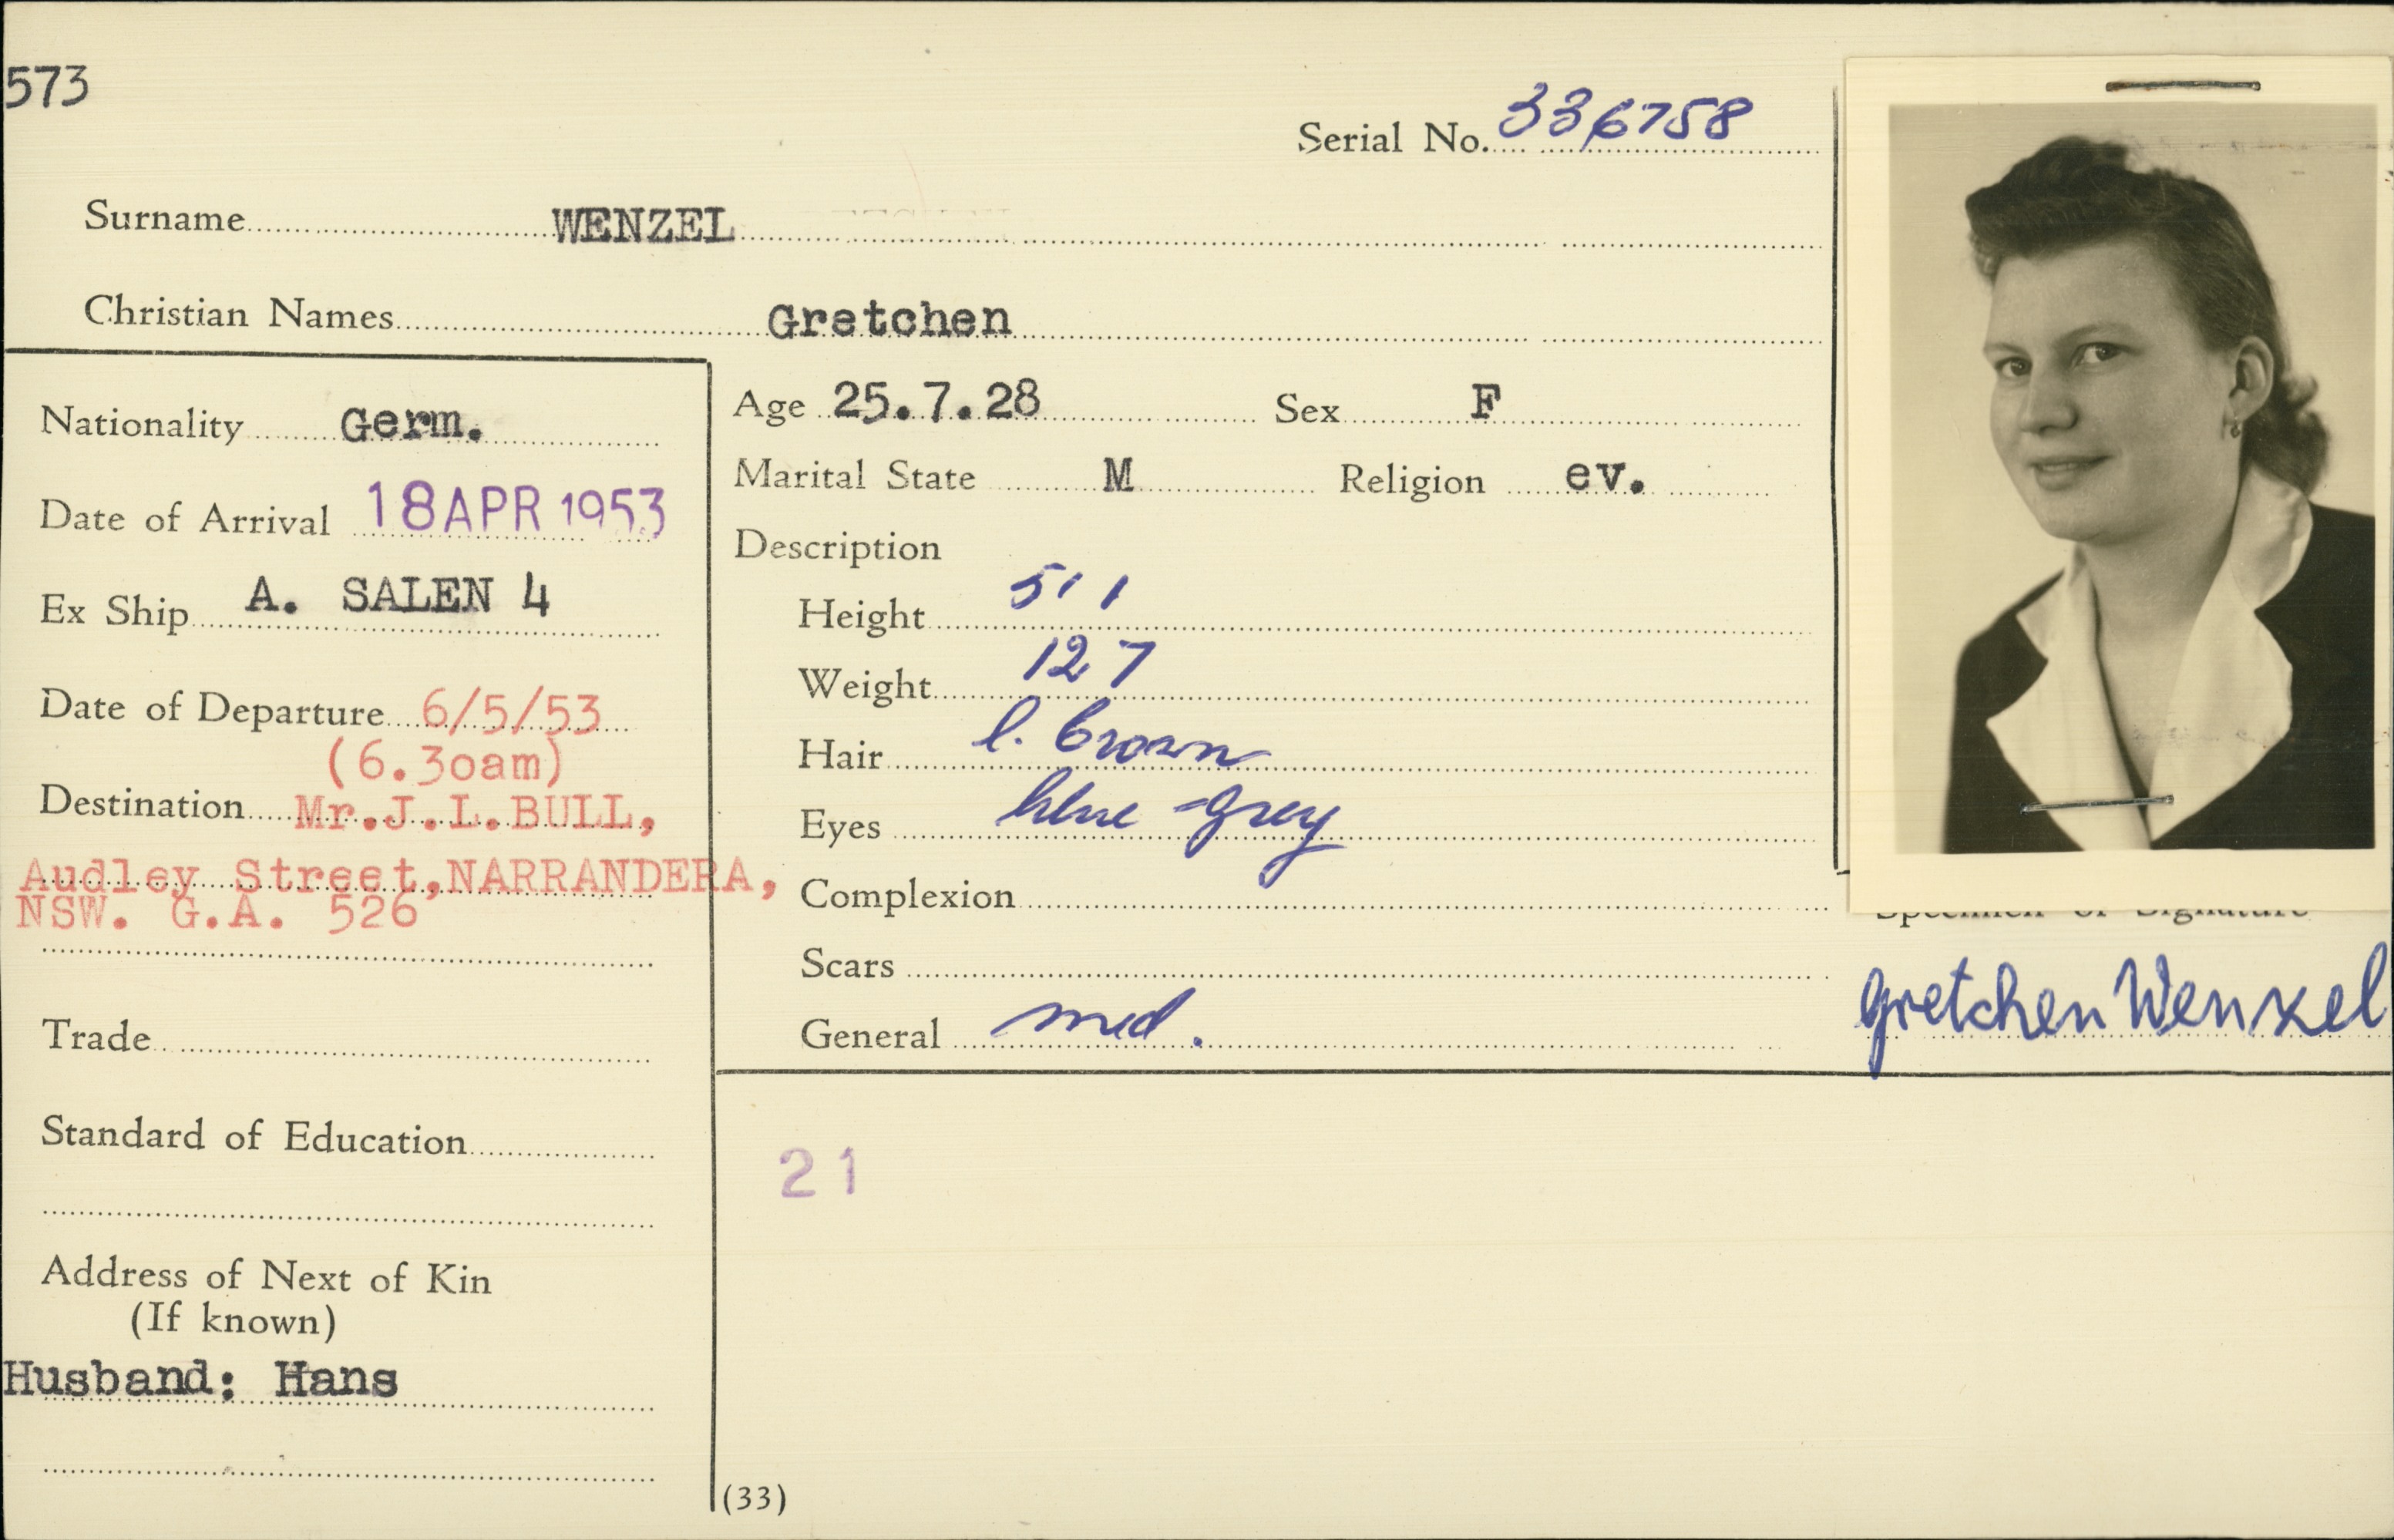 573
Serial No. 336758
Surname WENZEL
Christian Names Gretchen
Nationality Germ.
Date of Arrival 18 APR 1953
Ex Ship A. SALEN 4
Date of Departure 6/5/53
(6.30am)
Destination Mr.J.L.BULL,
Audley Street, NARRANDERA,
NSW. G.A. 526
Trade
Standard of Education
Address of Next of Kin
(If known)
Husband: Hans
Age 25.7.28 Sex F
Marital State M Religion ev.
Description
Height 5' 1
Weight 127
Hair l. brown
Eyes blue-grey
Complexion
Scars
General med.
Specimen of Signature
Gretchen Wenzel
21
(33)